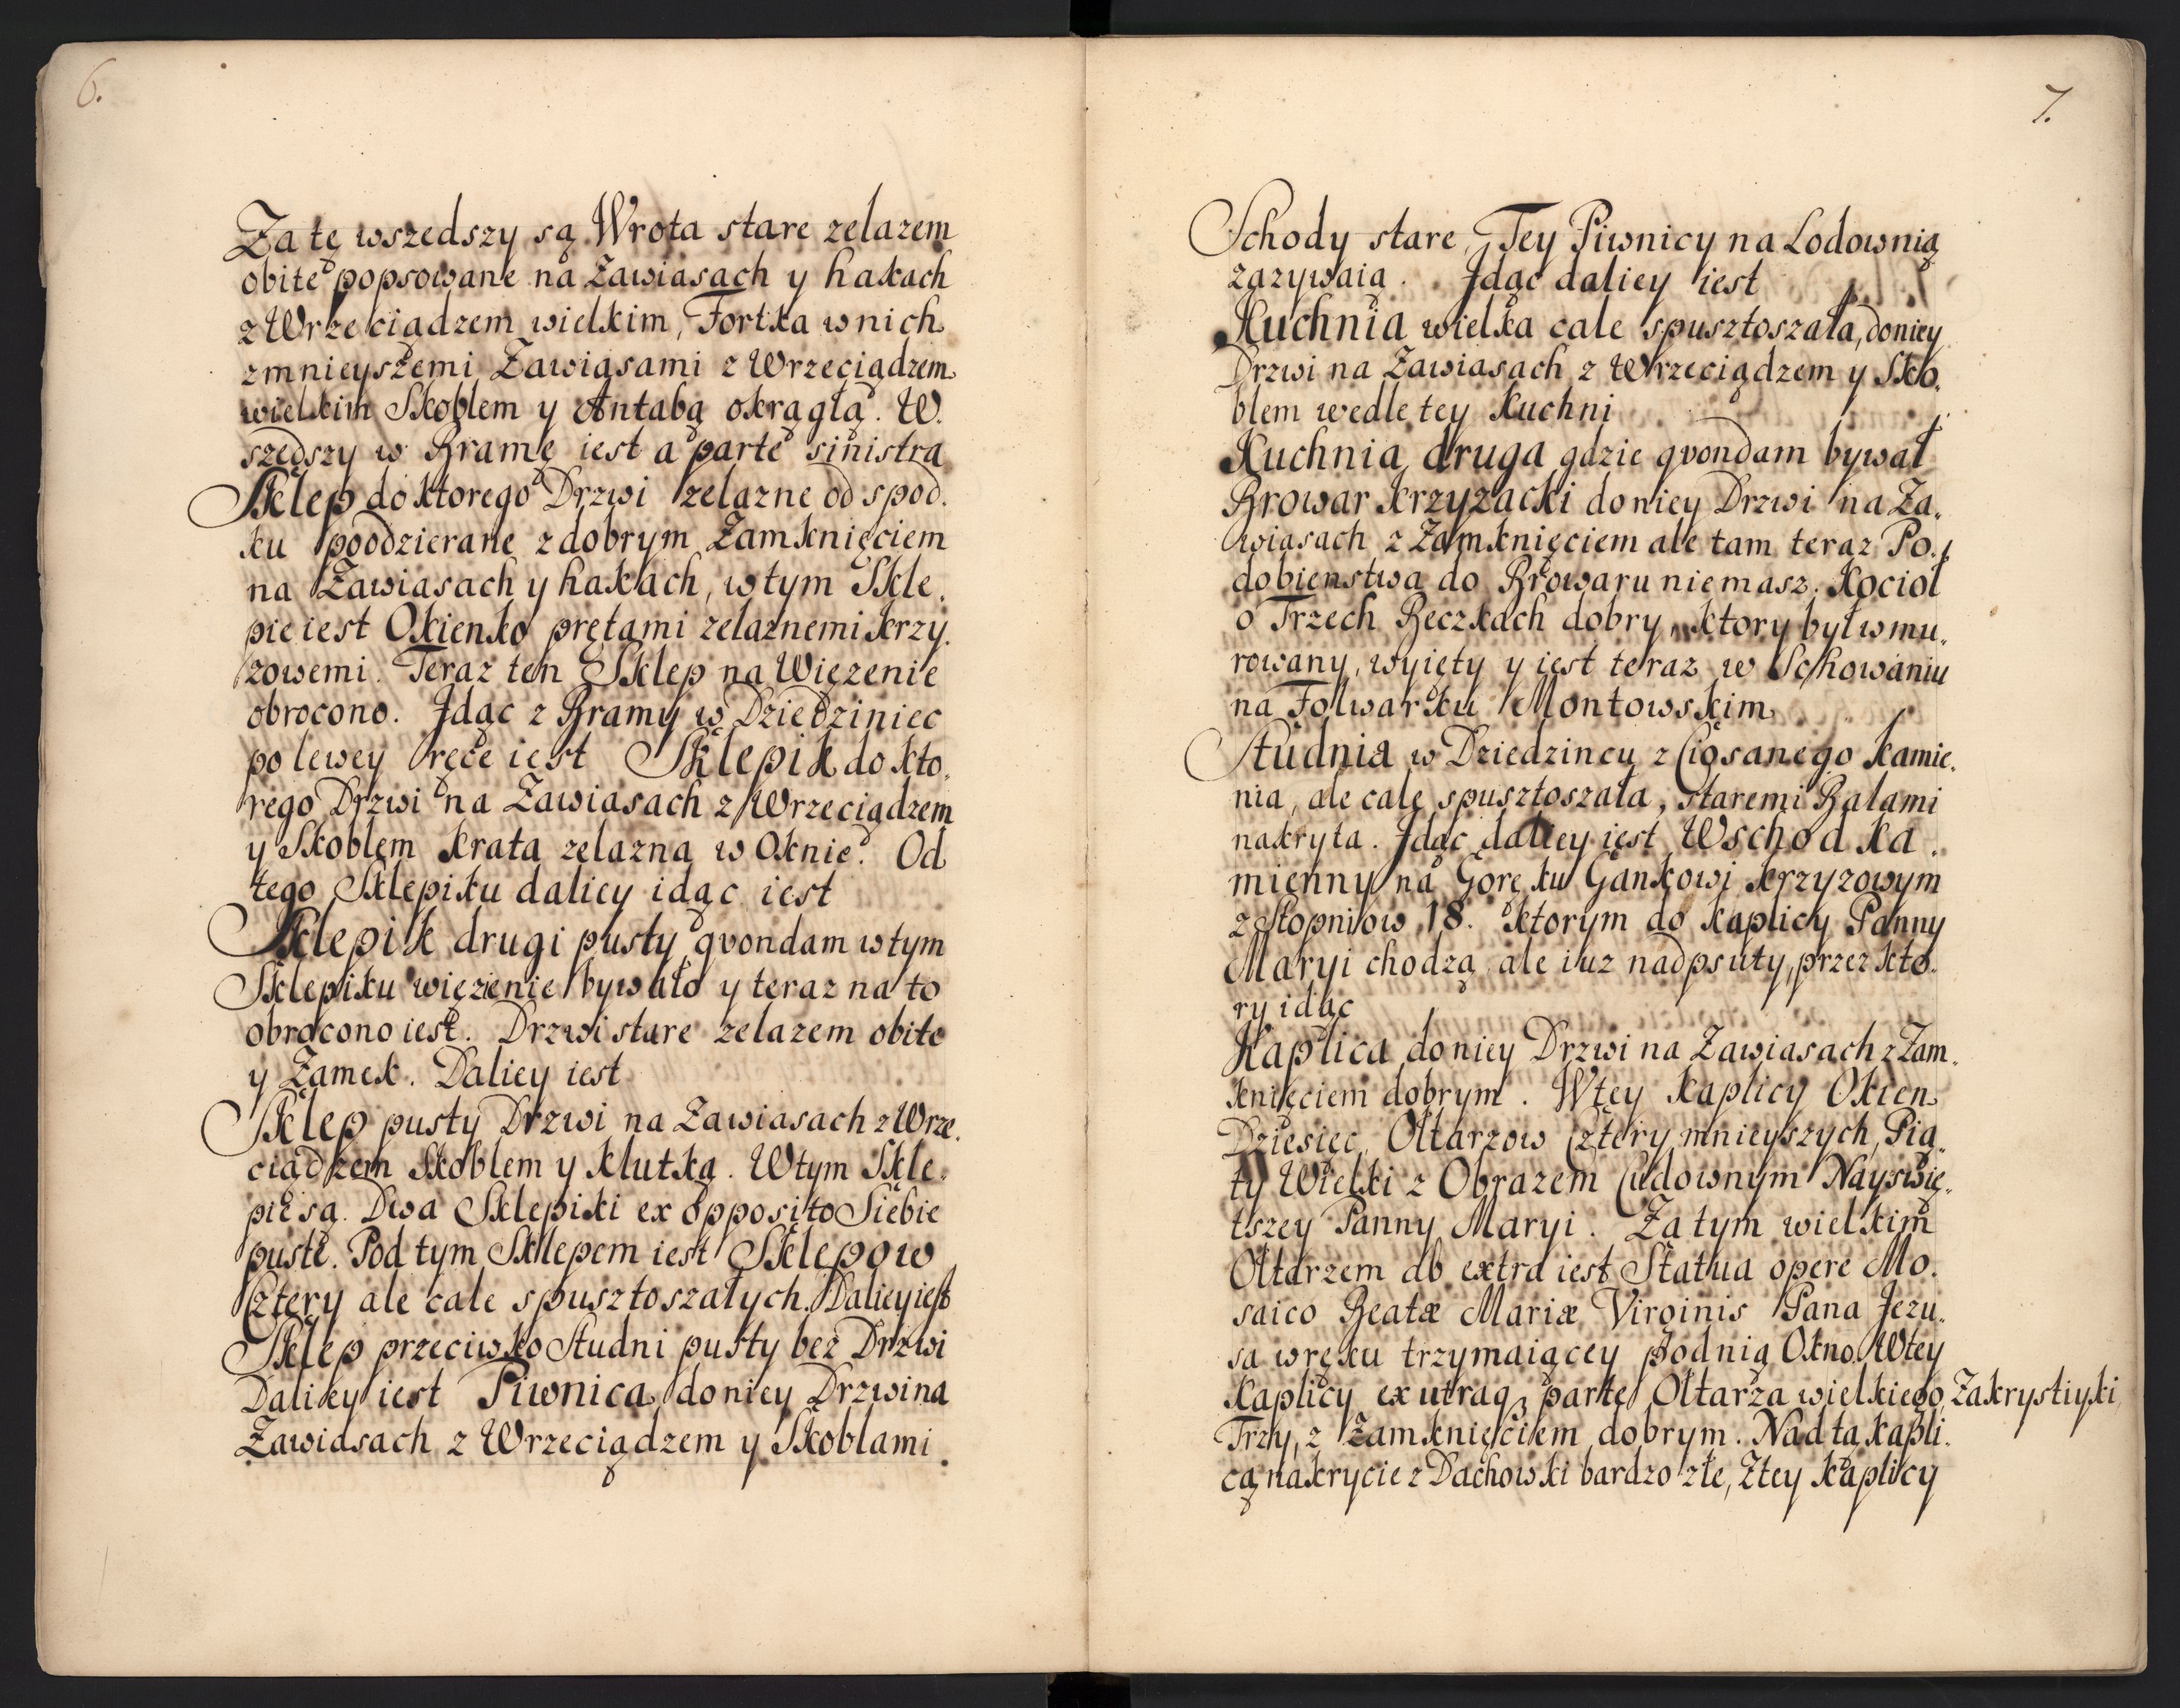 6.
Za tę wszedszy są Wrota stare zelazem
obite popsowane na Zawiasach y hakach
z Wrzeciądzem wielkim, Fortka w nich
z mnieyszemi Zawiasami z Wrzeciądzem
wielkim Skoblem y Antabą okrągłą. W.
szedszy w Bramę iest a parte sinistra
Sklep do ktorego Drzwi zelazne od spod.
ku poodzierane z dobrym Zamknięciem
na Zawiasach y hakach, w tym Skle.
pie iest Okienko prętami zelaznemi krzy.
zowemi. Teraz ten Sklep na Więzenie
obrocono. Jdąc z Bramy w Dziedziniec
po lewey ręce iest Sklepik do kto.
rego Drzwi na Zawiasach z Wrzeciądzem
y Skoblem krata zelazna w Oknie. Od
tego Sklepiku daliey idąc iest
Sklepik drugi pusty qvondam w tym
Sklepiku więzienie bywało y teraz na to
obrocono iest. Drzwi stare zelazem obite
y Zamek. Daliey iest
Sklep pusty Drzwi na Zawiasach z Wrze.
ciądzem Skoblem y Klutką. W tym Skle.
pie są Dwa Sklepiki ex opposito Siebie
puste. Pod tym Sklepem iest Sklepow
Cztery ale cale spusztoszałych. Daliey iest
Sklep przeciwko Studni pusty bez Drzwi
Daliey iest Piwnica do niey Drzwi na
Zawiasach z Wrzeciądzem y Skoblami.
7.
Schody stare, Tey Piwnicy na Lodownią
zazywaią. Jdąc daliey iest
Kuchnia wielka cale spusztoszała, do niey
Drzwi na Zawiasach z Wrzeciądzem y Sko.
blem wedle tey Kuchni
Kuchnia druga gdzie qvondam bywał
Browar krzyzacki do niey Drzwi na Za.
wiasach z Zamknięciem ale tam teraz Po.
dobienstwa do Browaru nie masz. Kocioł
o Trzech Beczkach dobry ktory był w mu.
rowany, wyięty y iest teraz w Schowaniu
na Folwarku Montowskim
Studnia w Dziedzincu z Ciosanego kamie.
nia, ale cale spusztoszała, staremi Balami
nakryta. Jdąc daliey iest Wschod ka.
mienny na Gorę ku Gankowi krzyzowym
z Stopniow 18. ktorym do Kaplicy Panny
Maryi chodzą ale iuz nadpsuty, przez kto.
ry idąc
Kaplica do niey Drzwi na Zawiasach z Zam.
knięciem dobrym. W tey Kaplicy Okien
Dziesięc, Ołtarzow Cztery mnieyszych, Pią.
ty Wielki z Obrazem Cudownym Nayswię.
tszey Panny Maryi. Za tym wielkim
Ołtarzem ab extra iest Statua opere Mo.
saico Beatæ Mariæ Virginis Pana Jezu.
sa w ręku trzymaiącey pod nią Okno. W tey
Kaplicy ex utraq3 parte Ołtarza wielkiego Zakrystiyki
Trzy, z Zamknięciem dobrym. Nad tą kapli.
cą nakrycie z Dachowki bardzo złe, Z tey kaplicy